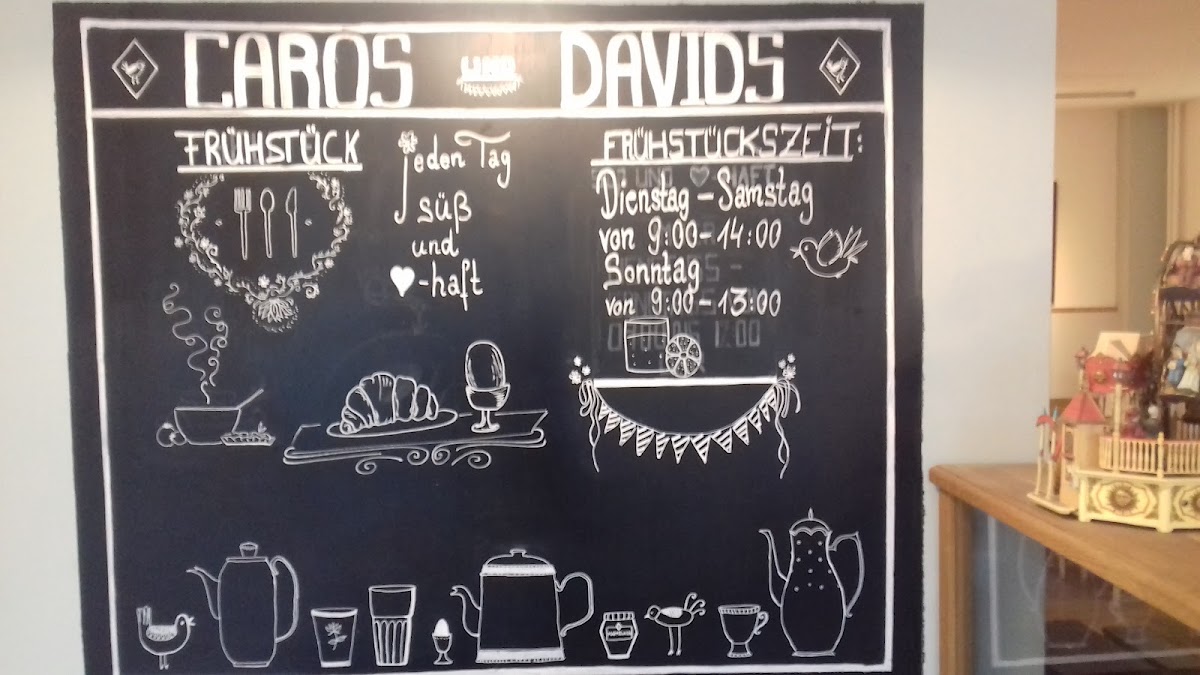 CAROS UND DAVIDS
FRÜHSTÜCK
jeden Tag
süß
und
-haft
FRÜHSTÜCKSZEIT:
Dienstag – Samstag
von 9:00 – 14:00
Sonntag
von 9:00 – 13:00